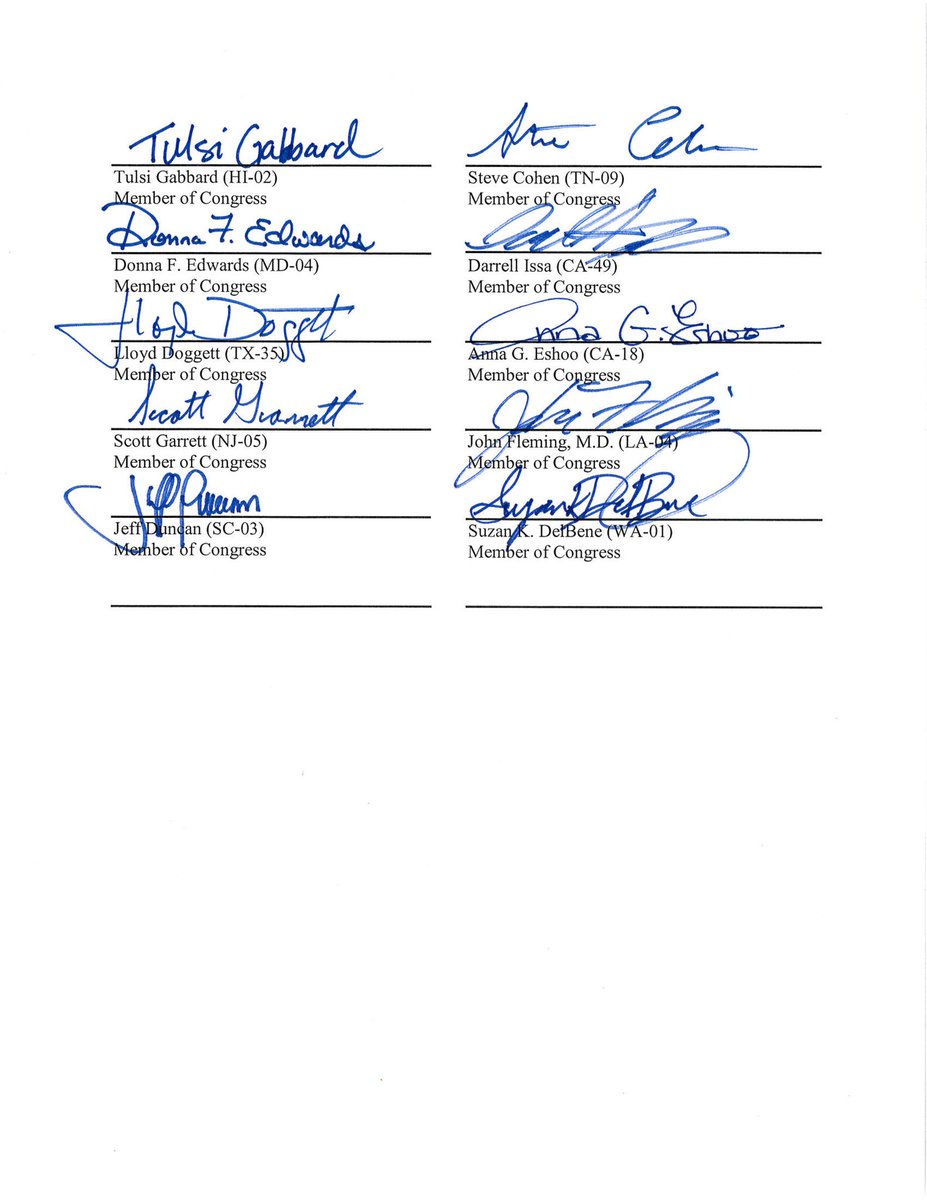 Tulsi Gabbard
Tulsi Gabbard (HI-02)
Member of Congress
Donna F. Edwards
Donna F. Edwards (MD-04)
Member of Congress
Lloyd Doggett
Lloyd Doggett (TX-35)
Member of Congress
Scott Garrett
Scott Garrett (NJ-05)
Member of Congress
Jeff Duncan
Jeff Duncan (SC-03)
Member of Congress
Steve Cohen
Steve Cohen (TN-09)
Member of Congress
Darrell Issa (CA-49)
Member of Congress
Anna G. Eshoo
Anna G. Eshoo (CA-18)
Member of Congress
John Fleming, M.D. (LA-04)
Member of Congress
Suzan K DelBene
Suzan K. DelBene (WA-01)
Member of Congress